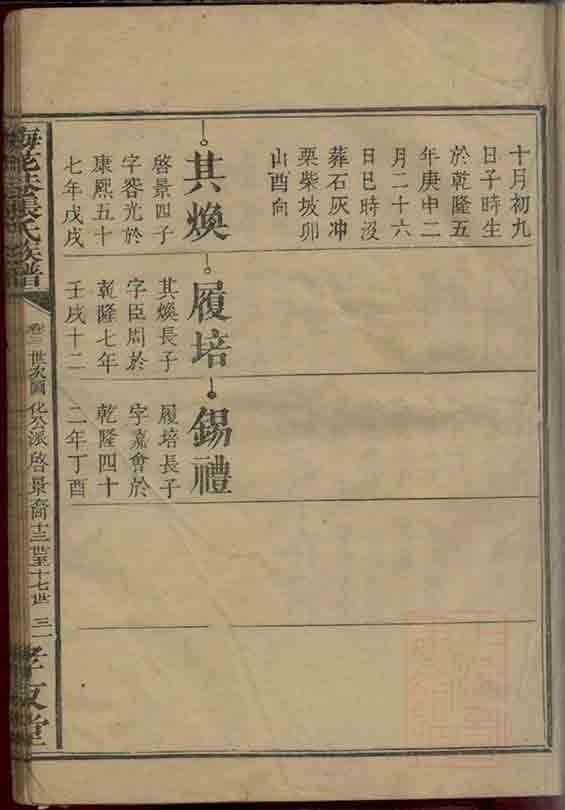 十月初九
日子時生
於乾隆五
年庚申二
月二十六
日巳時沒
葬石灰冲
栗柴坡卯
山酉向
其煥
啓景四子
字晷光於
康熙五十
七年戊戌
履培
其煥長子
字臣周於
乾隆七年
壬戌十二
錫禮
履培長子
字嘉會於
乾隆四十
二年丁酉
張氏族譜
卷三 世次圖 化公派 啓景裔 十三世至十七世
孝友堂